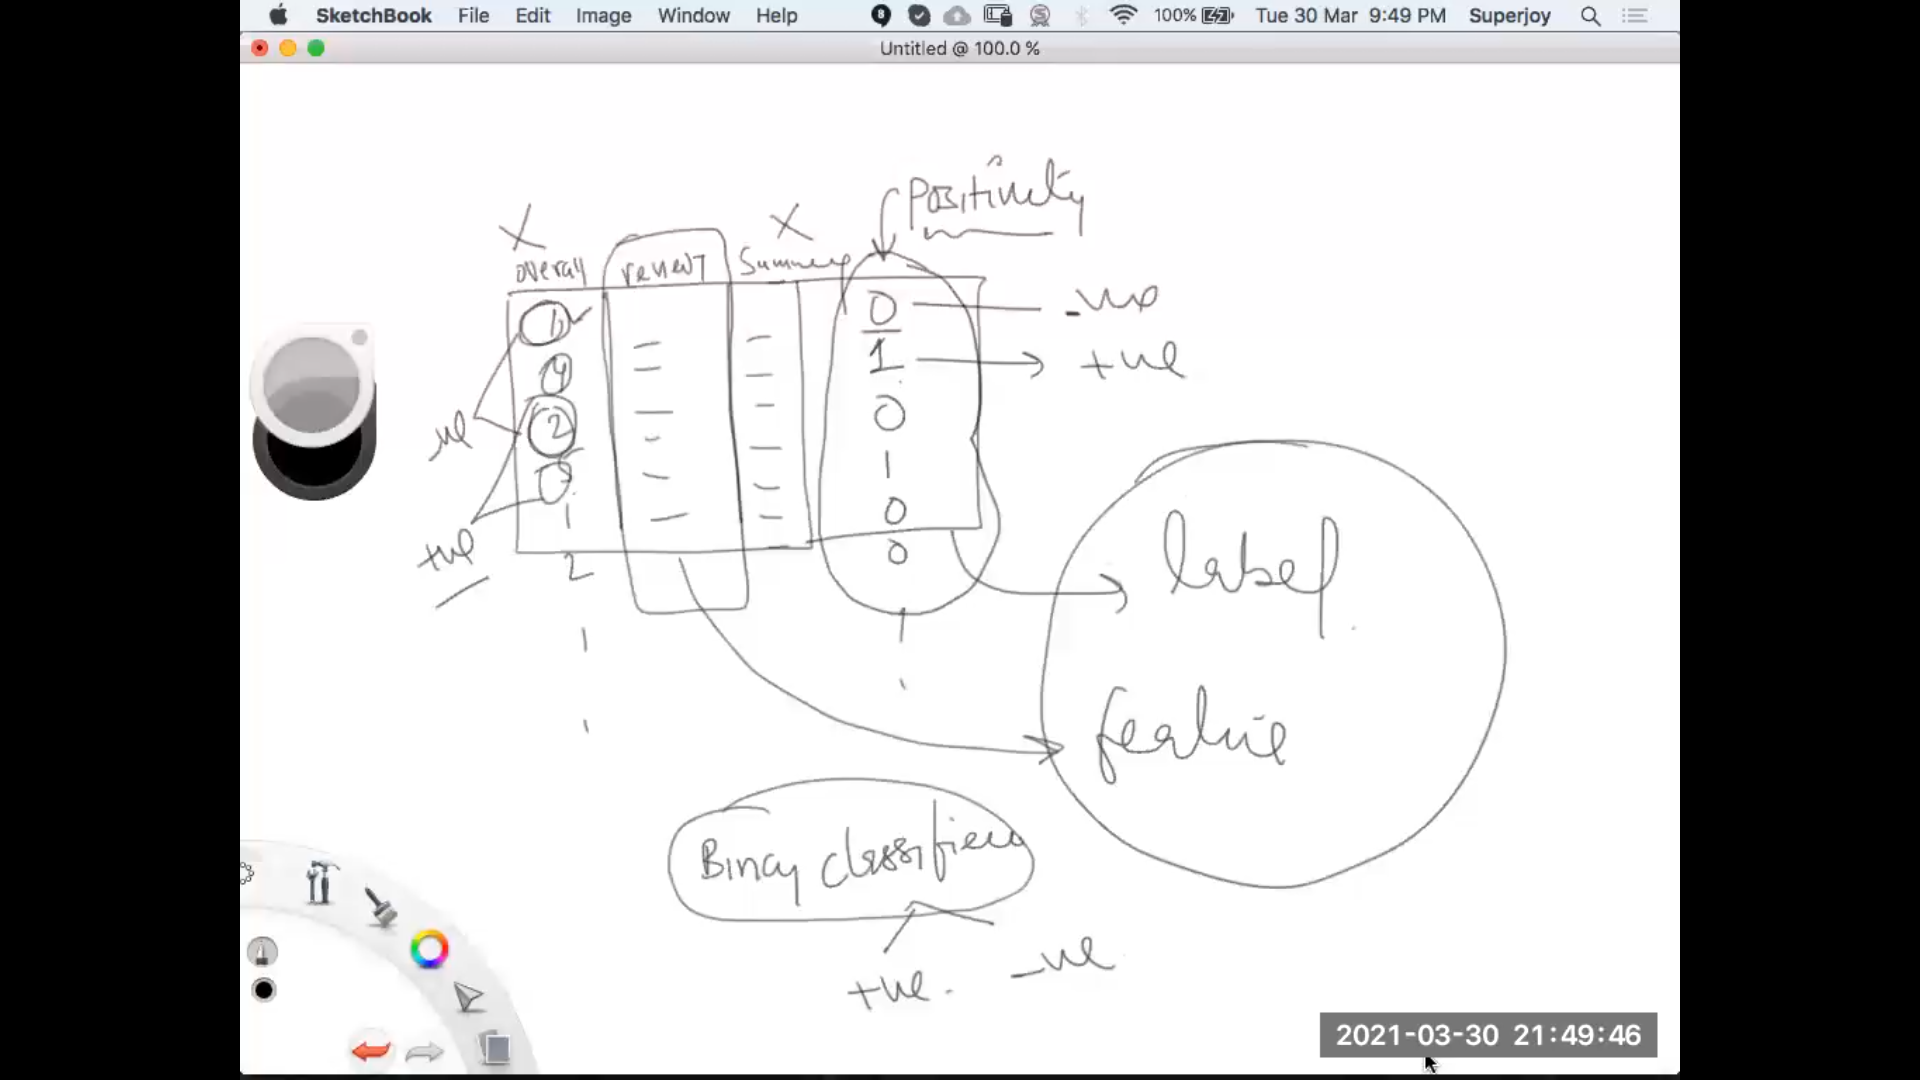 SketchBook File Edit Image Window Help 8 S 100% Tue 30 Mar 9:49 PM Superjoy
Untitled @ 100.0 %
Positivity
X X
overall review Summary
1 0 -ve
4 1 +ve
2 0
-ve
5 1
1 0
+ve
2 0
label
feature
Binary classifier
+ve. -ve
2021-03-30 21:49:46